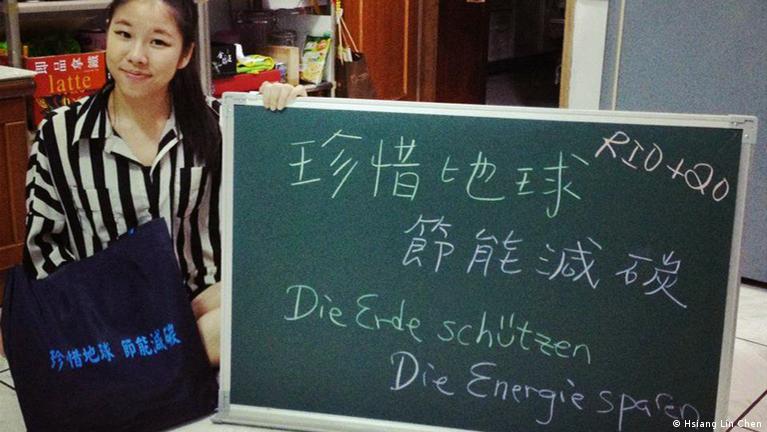 latte
珍惜地球
RIO+20
節能減碳
Die Erde schützen
Die Energie sparen
珍惜地球 節能減碳
© Hsiang Lin Chen